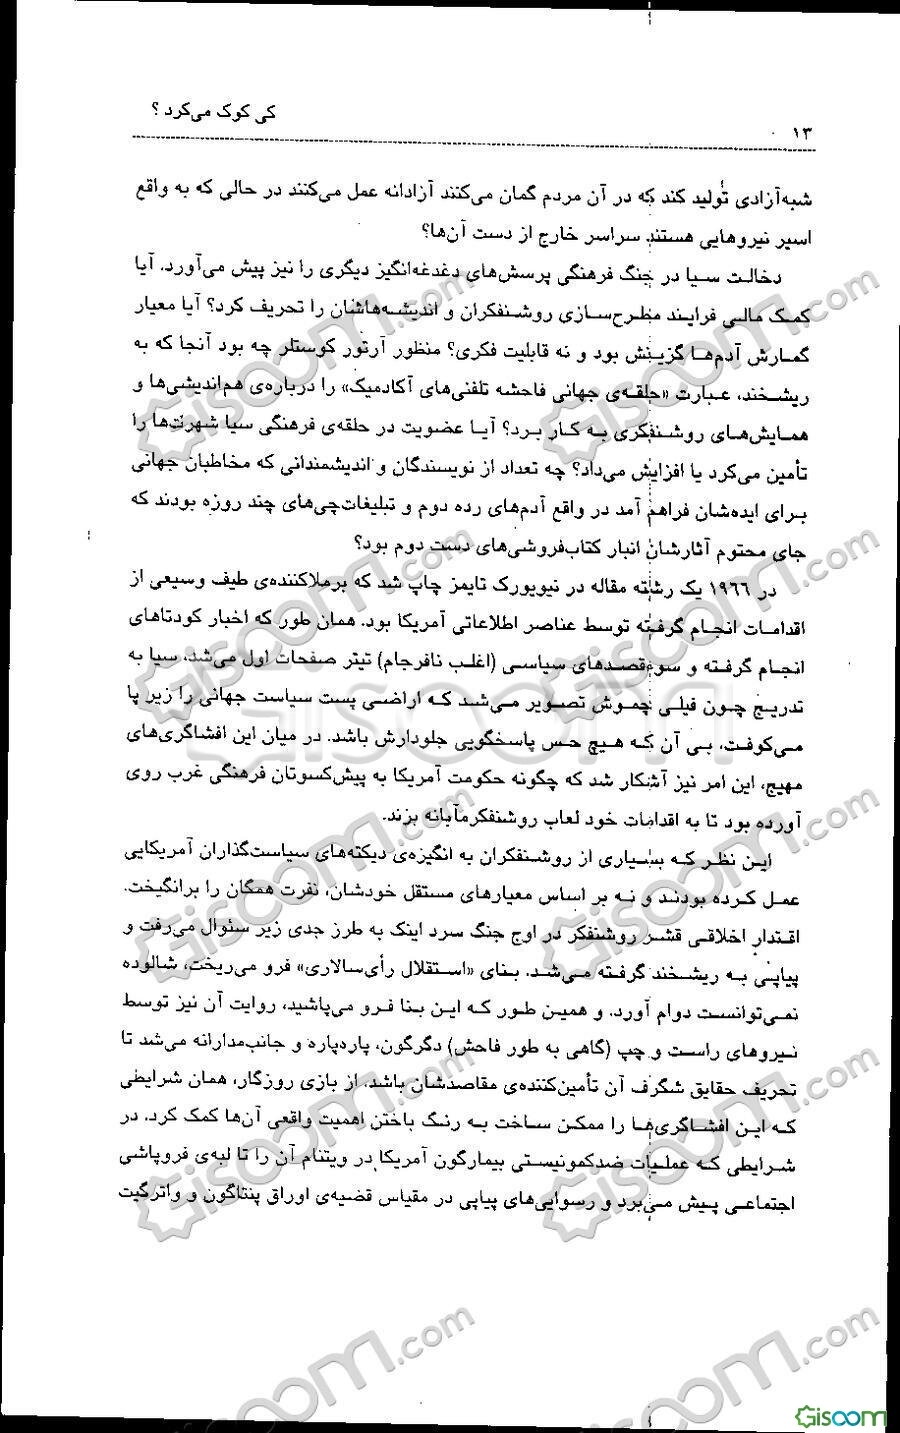 کی کوک می‌کرد ؟
۱۳
شبه‌آزادی تولید کند که در آن مردم گمان می‌کنند آزادانه عمل می‌کنند در حالی که به واقع
اسیر نیروهایی هستند سراسر خارج از دست آن‌ها؟
دخالت سیا در جنگ فرهنگی پرسش‌های دغدغه‌انگیز دیگری را نیز پیش می‌آورد. آیا
کمک مالی فرایند مطرح‌سازی روشنفکران و اندیشه‌هاشان را تحریف کرد؟ آیا معیار
گمارش آدم‌ها گزینش بود و نه قابلیت فکری؟ منظور آرتور کوستلر چه بود آنجا که به
ریشخند، عبارت «حلقه‌ی جهانی فاحشه تلفنی‌های آکادمیک» را درباره‌ی هم‌اندیشی‌ها و
همایش‌های روشنفکری به کار برد؟ آیا عضویت در حلقه‌ی فرهنگی سیا شهرت‌ها را
تأمین می‌کرد یا افزایش می‌داد؟ چه تعداد از نویسندگان و اندیشمندانی که مخاطبان جهانی
برای ایده‌شان فراهم آمد در واقع آدم‌های رده دوم و تبلیغات‌چی‌های چند روزه بودند که
جای محتوم آثارشان انبار کتاب‌فروشی‌های دست دوم بود؟
در ۱۹۶۶ یک رشته مقاله در نیویورک تایمز چاپ شد که برملاکننده‌ی طیف وسیعی از
اقدامات انجام گرفته توسط عناصر اطلاعاتی آمریکا بود. همان طور که اخبار کودتاهای
انجام گرفته و سوءقصدهای سیاسی (اغلب نافرجام) تیتر صفحات اول می‌شد، سیا به
تدریج چون فیلی چموش تصویر می‌شد که اراضی پست سیاست جهانی را زیر پا
می‌کوفت، بی آن که هیچ حس پاسخگویی جلودارش باشد. در میان این افشاگری‌های
مهیج، این امر نیز آشکار شد که چگونه حکومت آمریکا به پیش‌کسوتان فرهنگی غرب روی
آورده بود تا به اقدامات خود لعاب روشنفکرمآبانه بزند.
این نظر که بسیاری از روشنفکران به انگیزه‌ی دیکته‌های سیاست‌گذاران آمریکایی
عمل کرده بودند و نه بر اساس معیارهای مستقل خودشان، نفرت همگان را برانگیخت.
اقتدار اخلاقی قشر روشنفکر در اوج جنگ سرد اینک به طرز جدی زیر سئوال می‌رفت و
پیاپی به ریشخند گرفته می‌شد. بنای «استقلال رأی‌سالاری» فرو می‌ریخت، شالوده
نمی‌توانست دوام آورد. و همین طور که این بنا فرو می‌پاشید، روایت آن نیز توسط
نیروهای راست و چپ (گاهی به طور فاحش) دگرگون، پاره‌پاره و جانب‌مدارانه می‌شد تا
تحریف حقایق شگرف آن تأمین‌کننده‌ی مقاصدشان باشد. از بازی روزگار، همان شرایطی
که این افشاگری‌ها را ممکن ساخت به رنگ باختن اهمیت واقعی آن‌ها کمک کرد. در
شرایطی که عملیات ضدکمونیستی بیمارگون آمریکا در ویتنام آن را تا لبه‌ی فروپاشی
اجتماعی پیش می‌برد و رسوایی‌های پیاپی در مقیاس قضیه‌ی اوراق پنتاگون و واترگیت
Gisoom